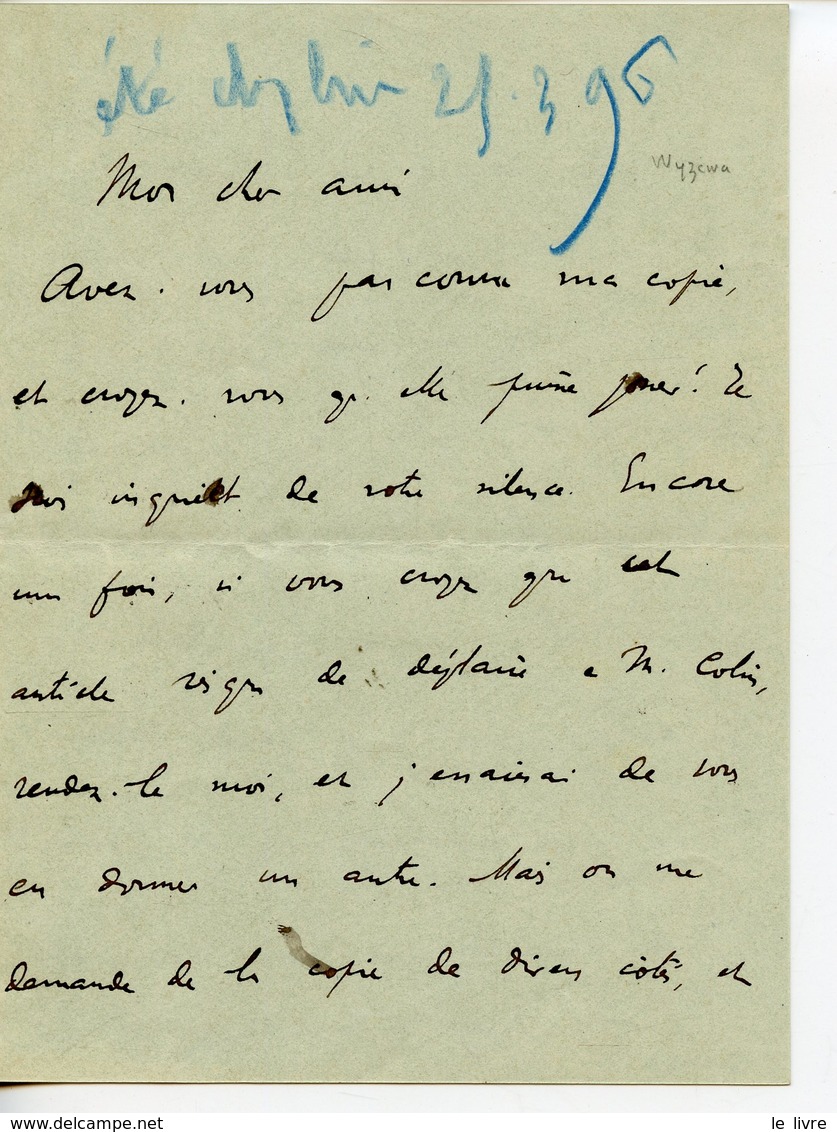 été 25.3.96
Wyzewa
Mon cher ami
Avez-vous parcouru ma copie,
et croyez-vous qu'elle puisse passer? Je
suis inquiet de votre silence. Encore
une fois, si vous croyez que cet
article risque de déplaire à M. Colin,
rendez-le moi, et j'essaierai de vous
en donner un autre. Mais on me
demande de la copie de divers côtés, et
www.delcampe.net
le livre